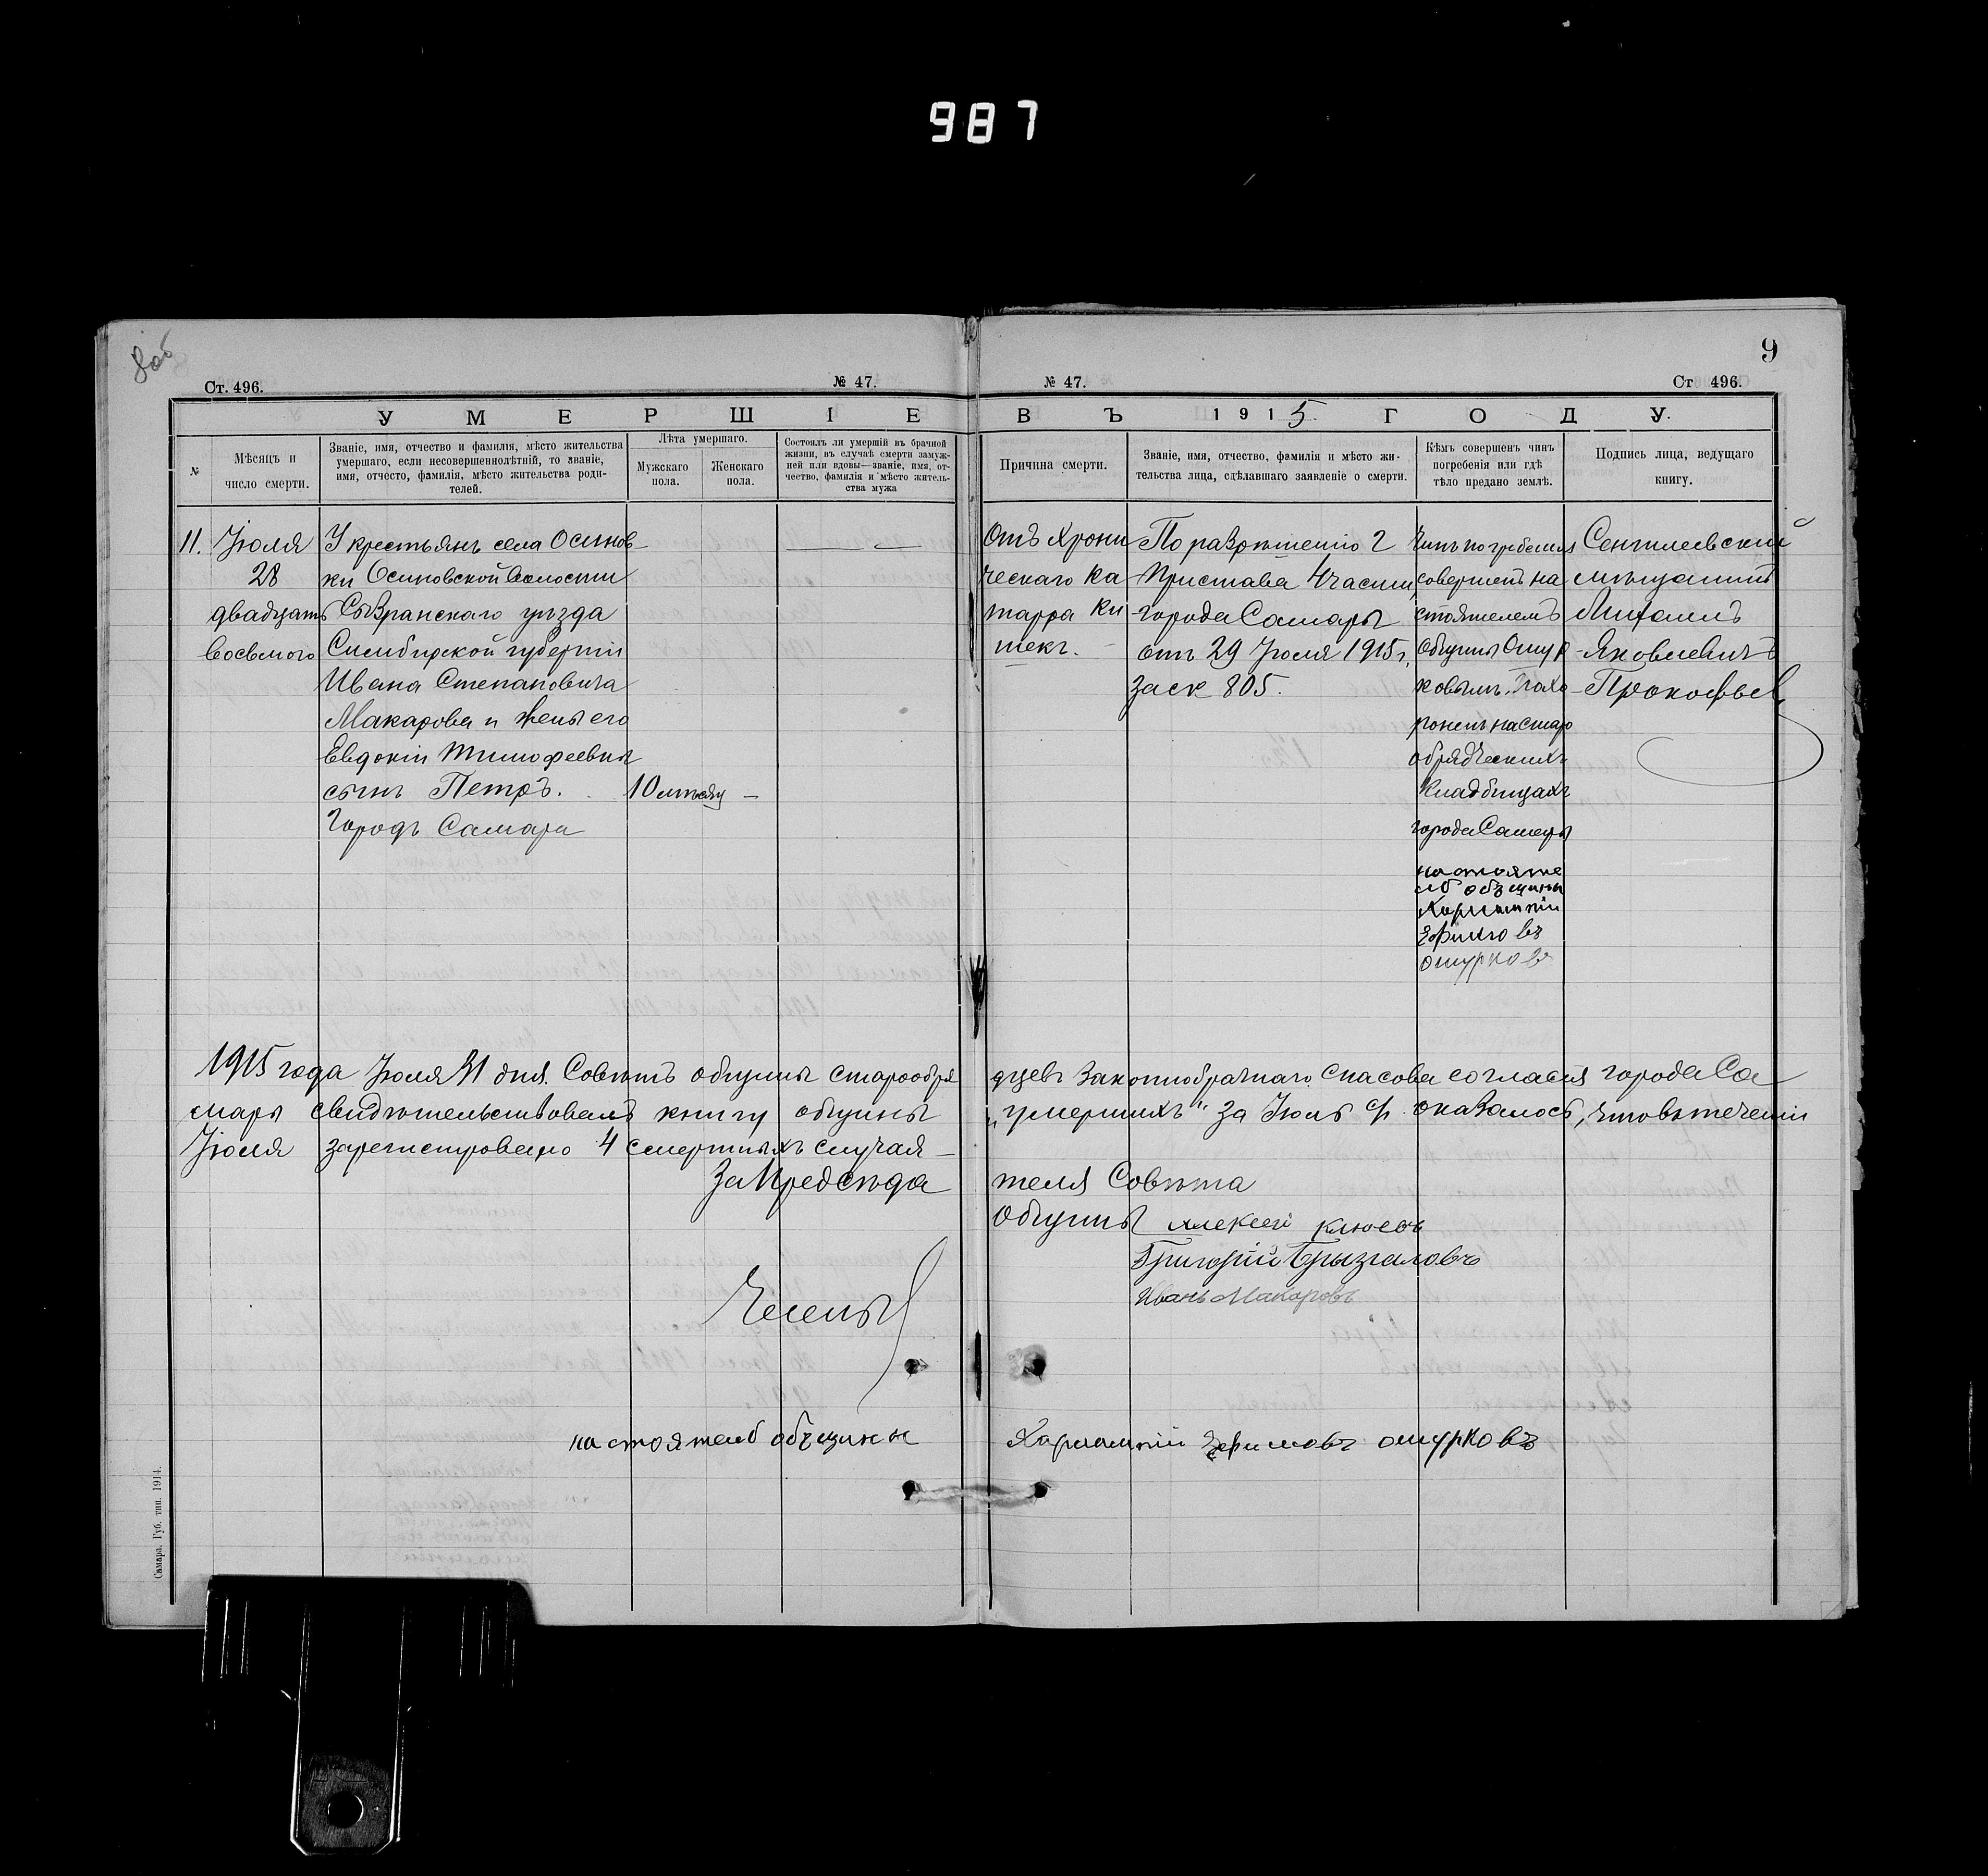 987
8об
9
Ст. 496.
№ 47.
№ 47.
Ст 496.
УМЕРШІЕ ВЪ 1915 ГОДУ.
№
Мѣсяцъ и
число смерти.
Званіе, имя, отчество и фамилія, мѣсто жительства
умершаго, если несовершеннолѣтній, то званіе,
имя, отчесто, фамилія, мѣсто жительства роди-
телей.
Лѣта умершаго.
Мужскаго
пола.
Женскаго
пола.
Состоялъ ли умершій въ брачной
жизни, въ случаѣ смерти замуж-
ней или вдовы—званіе, имя, от-
чество, фамилія и мѣсто житель-
ства мужа
Причина смерти.
Званіе, имя, отчество, фамилія и мѣсто жи-
тельства лица, сдѣлавшаго заявленіе о смерти.
Кѣмъ совершенъ чинъ
погребенія или гдѣ
тѣло предано землѣ.
Подпись лица, ведущаго
книгу.
11.
Іюля
28
двадцать
восьмого
У крестьянъ села Осинов-
ки Осиновской волости
Сызранскаго уѣзда
Симбирской губерніи
Ивана Степановича
Макарова и жены его
Евдокіи Тимофеевны
сынъ Петръ.
Городъ Самара
10 мѣсяц —
— —
Отъ хрони
ческаго ка
тарра ки
шекъ.
По разрѣшенію г
Пристава 4 части,
города Самары
отъ 29 Іюля 1915 г.
за № 805.
Чинъ погребенія
совершенъ на
стоятелемъ
общины Ошур
ковымъ. Похо
роненъ на старо
обрядческихъ
кладбищахъ
города Самары
настояте
ль обьщины
Харлампіи
Ефимовъ
ошурковъ
Сенгилеевскій
мѣщанинъ
Михаилъ
Яковлевичъ
Прокофьев
1915 года Іюля 31 дня. Совѣтъ общины старообря
дцевъ законнобрачнаго Спасова согласія города Са
мары свидѣтельствовалъ книгу общины
„умершихъ" за Іюль с/г. оказалось, что въ теченіи
Іюля зарегистровано 4 смертныхъ случая —
За Предсѣда
теля Совѣта
Общины Алексей Клюевъ
Члены
Григорій Брызгаловъ
Иванъ Макаровъ
настоятель обьщины Харлампіи Ефимовъ ошурковъ
Самара. Губ. тип. 1914.